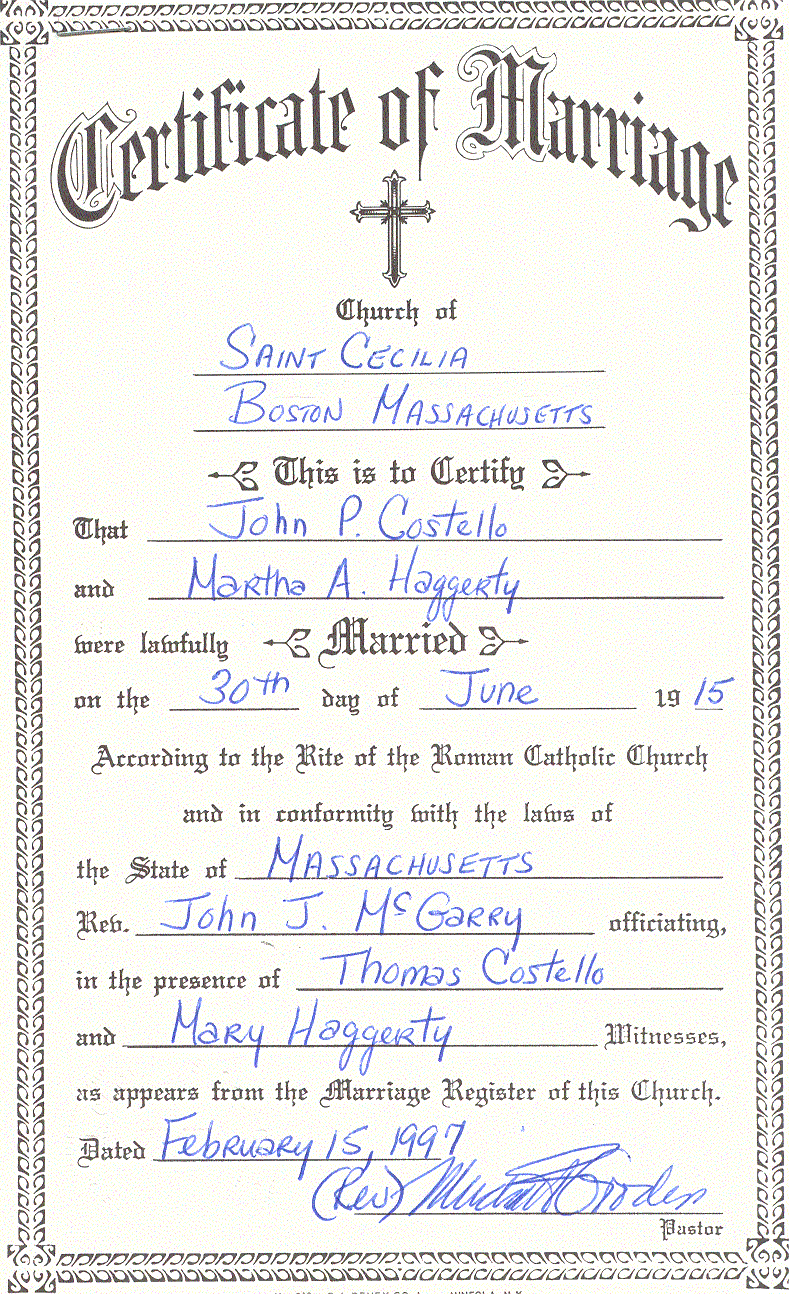 Certificate of Marriage
Church of
SAINT CECILIA
BOSTON MASSACHUSETTS
This is to Certify
That John P. Costello
and Martha A. Haggerty
were lawfully Married
on the 30th day of June 1915
According to the Rite of the Roman Catholic Church
and in conformity with the laws of
the State of MASSACHUSETTS
Rev. John J. McGarry officiating,
in the presence of Thomas Costello
and Mary Haggerty Witnesses,
as appears from the Marriage Register of this Church.
Dated February 15, 1997
(Rev)
Pastor